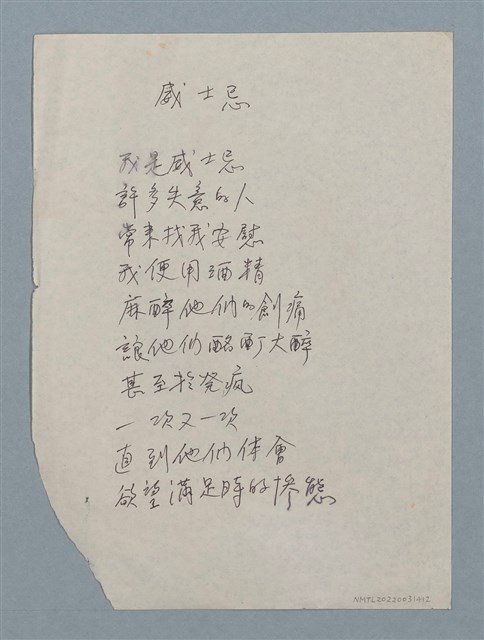 威士忌
我是威士忌
許多失意的人
常来找我安慰
我便用酒精
麻醉他们的創痛
讓他们酩酊大醉
甚至於發疯
一次又一次
直到他们体會
欲望滿足時的惨態
NMTL20220031412